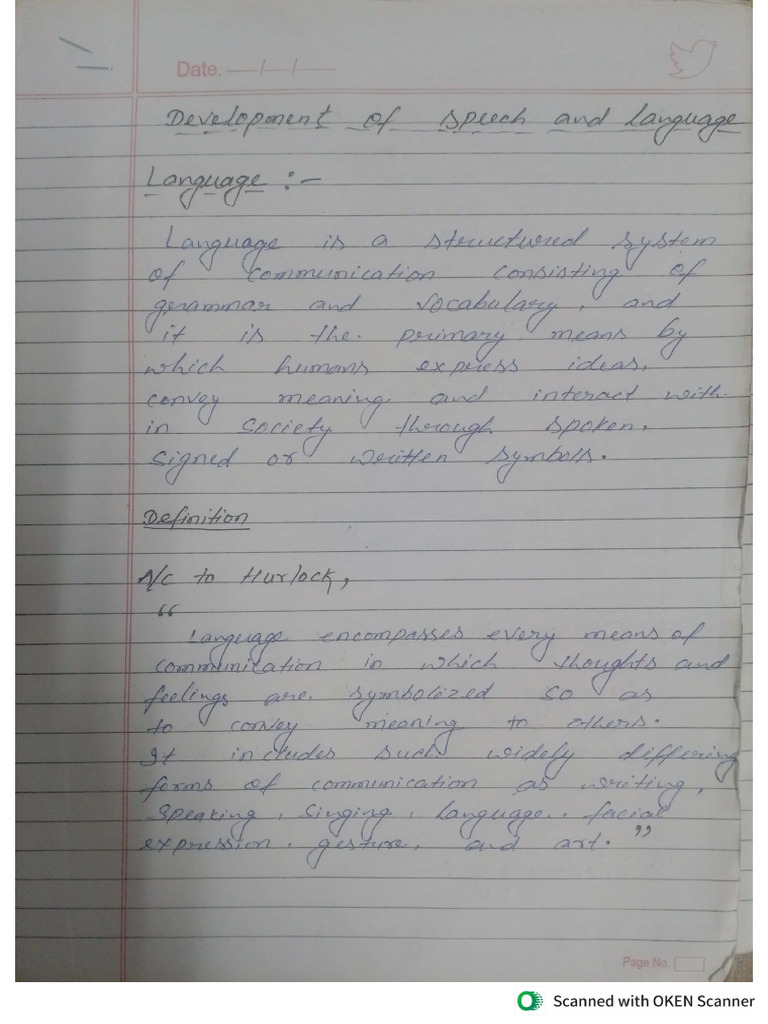 Date. —/—/—
Development of speech and language
Language :-
Language is a structured system
of communication consisting of
grammar and vocabulary, and
it is the primary means by
which humans express ideas,
convey meaning and interact with
in society through spoken,
signed or written symbols.
Definition
A/c to Hurlock,
“
Language encompasses every means of
communication in which thoughts and
feelings are symbolized so as
to convey meaning to others.
It includes such widely differing
forms of communication as writing,
speaking, singing, language, facial
expression, gesture, and art.”
Page No.
Scanned with OKEN Scanner